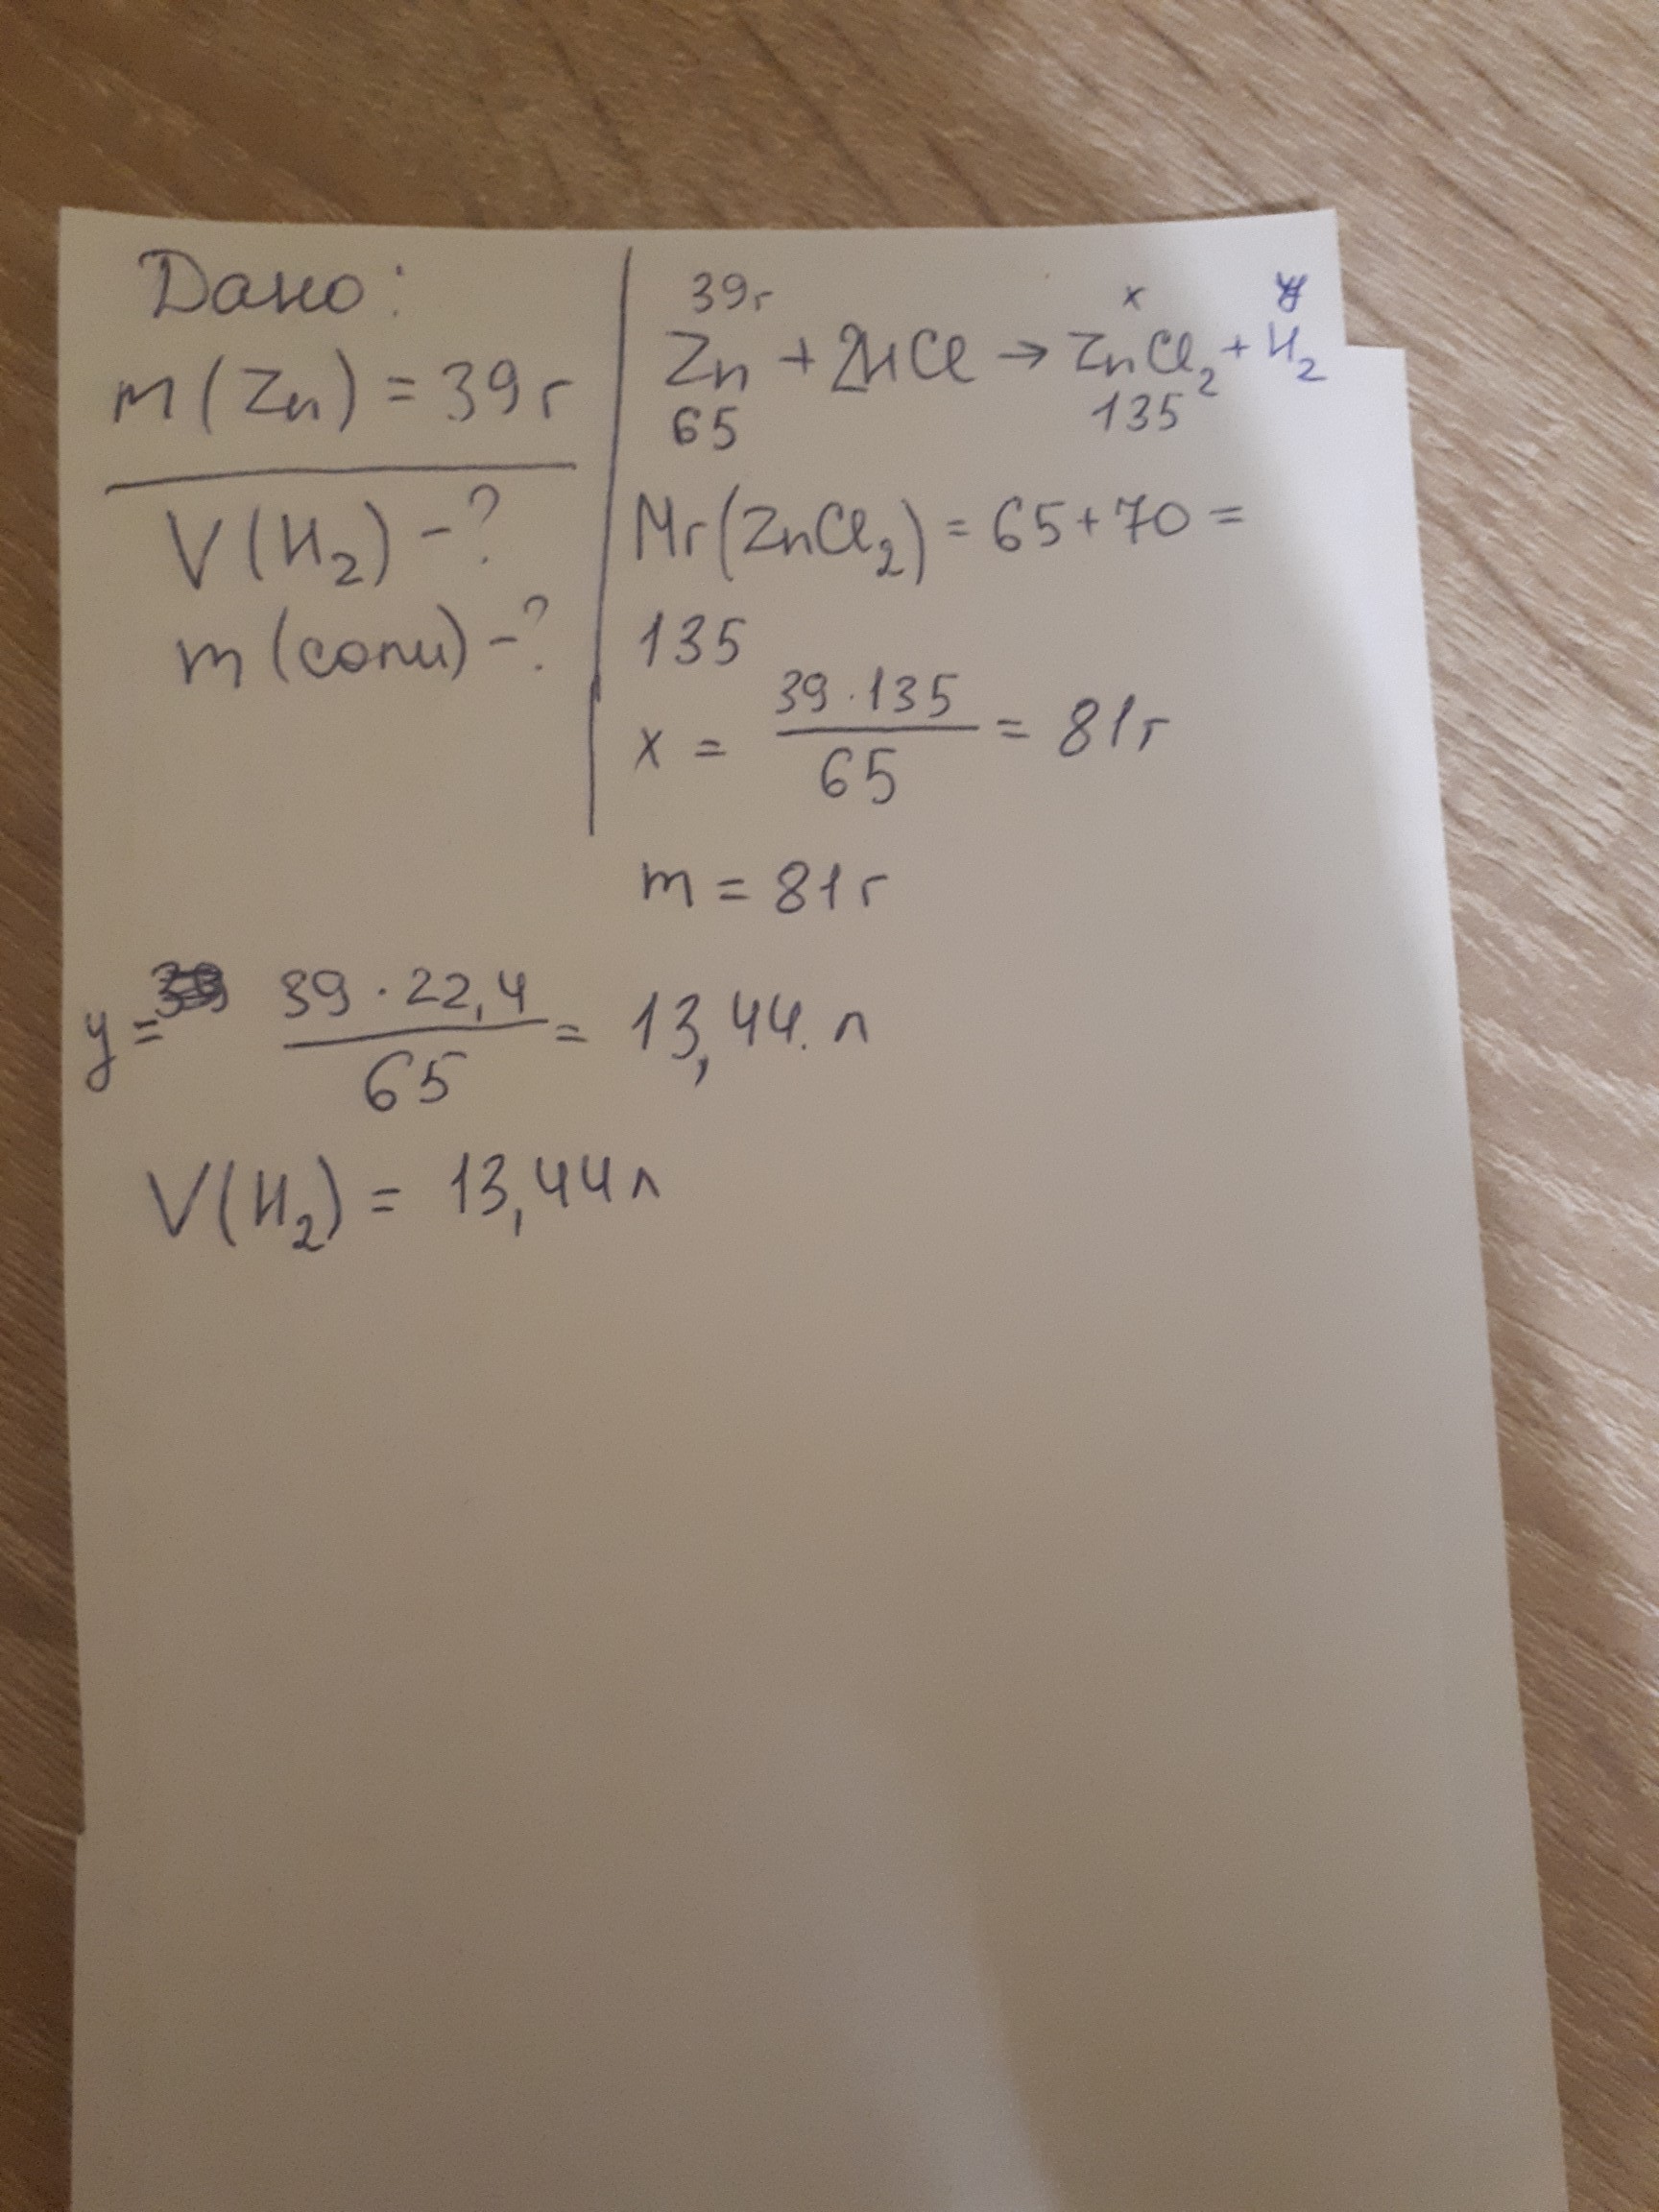 Дано:
m(Zn) = 39г
V(H₂) -?
m(соли) -?
39г x y
Zn + 2HCl → ZnCl₂ + H₂
65 135
Mr(ZnCl₂) = 65+70 =
135
x = 39·135/65 = 81г
m = 81г
y = 39·22,4/65 = 13,44. л
V(H₂) = 13,44л